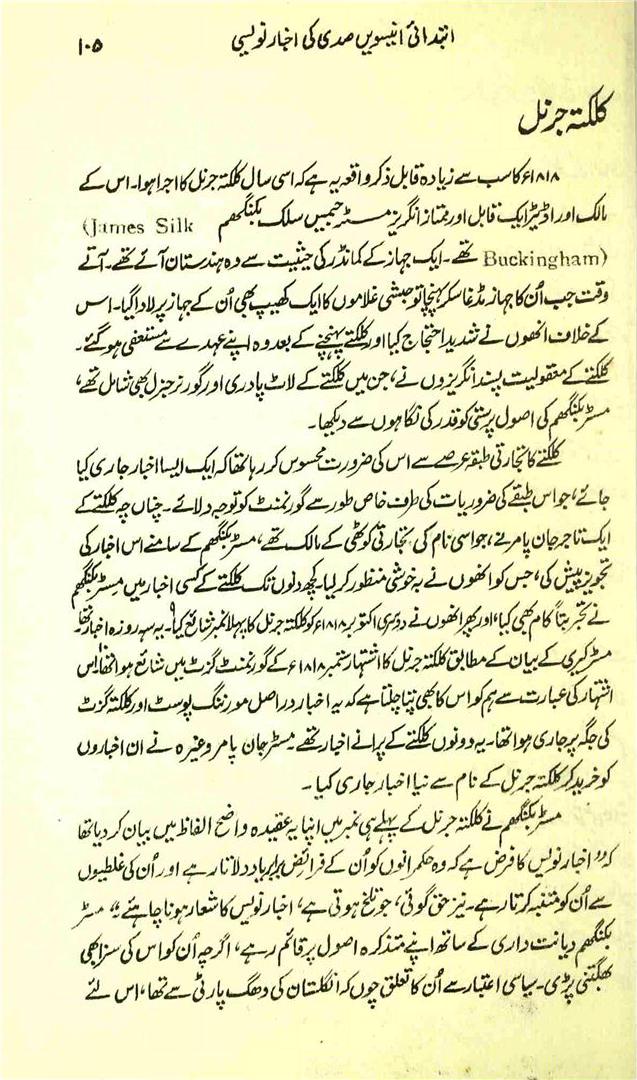 ابتدائی انیسویں صدی کی اخبار نویسی ۱۰۵
کلکتہ جرنل
۱۸۱۸ء کا سب سے زیادہ قابل ذکر واقعہ یہ ہے کہ اسی سال کلکتہ جرنل کا اجرا ہوا۔ اس کے
مالک اور اڈیٹر ایک قابل اور ممتاز انگریز مسٹر جیمیں سلک بکنگھم (James Silk
Buckingham) تھے۔ ایک جہاز کے کمانڈر کی حیثیت سے وہ ہندستان آئے تھے۔ آتے
وقت جب اُن کا جہاز مڈغاسکر پہنچا تو حبشی غلاموں کا ایک کھیپ بھی اُن کے جہاز پر لادا گیا۔ اس
کے خلاف انھوں نے شدید احتجاج کیا اور کلکتے پہنچنے کے بعد وہ اپنے عہدے سے مستعفی ہو گئے۔
کلکتے کے معقولیت پسند انگریزوں نے، جن میں کلکتے کے لاٹ پادری اور گورنر جنرل بھی شامل تھے،
مسٹر بکنگھم کی اصول پرستی کو قدر کی نگاہوں سے دیکھا۔
کلکتے کا تجارتی طبقہ عرصے سے اس کی ضرورت محسوس کر رہا تھا کہ ایک ایسا اخبار جاری کیا
جائے، جو اس طبقے کی ضروریات کی طرف خاص طور سے گورنمنٹ کو توجہ دلائے۔ چناں چہ کلکتے کے
ایک تاجر جان پامر نے، جو اسی نام کی تجارتی کوٹھی کے مالک تھے، مسٹر بکنگھم کے سامنے اس اخبار کی
تجویز پیش کی، جس کو انھوں نے بہ خوشی منظور کر لیا۔ کچھ دنوں تک کلکتے کے کسی اخبار میں مسٹر بکنگھم
نے تجربتاً کام بھی کیا، اور پھر انھوں نے دوسری اکتوبر ۱۸۱۸ء کو کلکتہ جرنل کا پہلا نمبر شائع کیا۔ یہ سہ روزہ اخبار تھا۔
مسٹر کیری کے بیان کے مطابق کلکتہ جرنل کا اشتہار ستمبر ۱۸۱۸ء کے گورنمنٹ گزٹ میں شائع ہوا تھا۔ اس
اشتہار کی عبارت سے ہم کو اس کا بھی پتا چلتا ہے کہ یہ اخبار دراصل مورننگ پوسٹ اور کلکتہ گزٹ
کی جگہ پر جاری ہوا تھا۔ یہ دونوں کلکتے کے پرانے اخبار تھے۔ مسٹر جان پامر وغیرہ نے ان اخباروں
کو خرید کر کلکتہ جرنل کے نام سے نیا اخبار جاری کیا۔
مسٹر بکنگھم نے کلکتہ جرنل کے پہلے ہی نمبر میں اپنا یہ عقیدہ واضح الفاظ میں بیان کر دیا تھا
کہ ”اخبار نویس کا فرض ہے کہ وہ حکمرانوں کو اُن کے فرائض برابر یاد دلاتا رہے اور اُن کی غلطیوں
سے اُن کو متنبہ کرتا رہے۔ نیز حق گوئی، جو تلخ ہوتی ہے، اخبار نویس کا شعار ہونا چاہئے“ مسٹر
بکنگھم دیانت داری کے ساتھ اپنے متذکرہ اصول پر قائم رہے، اگرچہ اُن کو اس کی سزا بھی
بھگتنی پڑی۔ سیاسی اعتبار سے اُن کا تعلق چوں کہ انگلستان کی وھگ پارٹی سے تھا، اس لئے